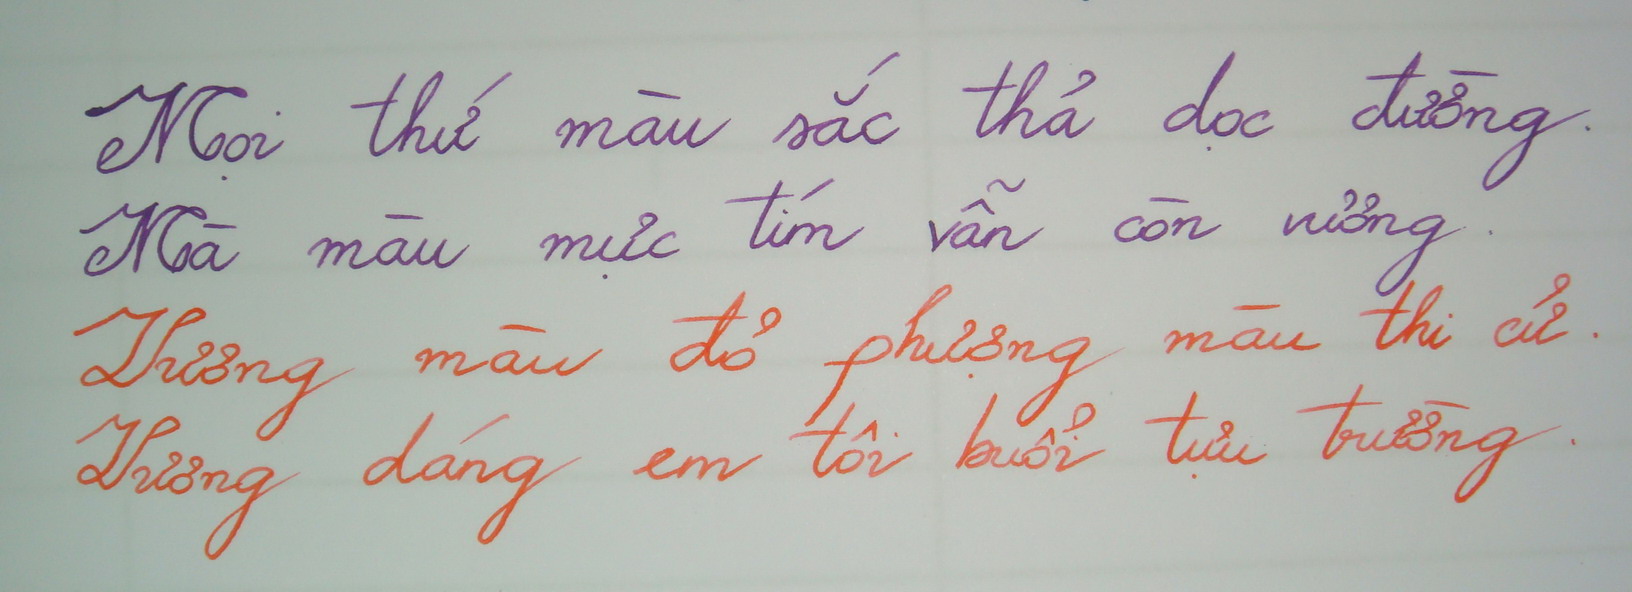 Mọi thứ màu sắc thả dọc đường.
Mà màu mực tím vẫn còn vương.
Vương màu đỏ phượng màu thi cử.
Vương dáng em tôi buổi tựu trường.